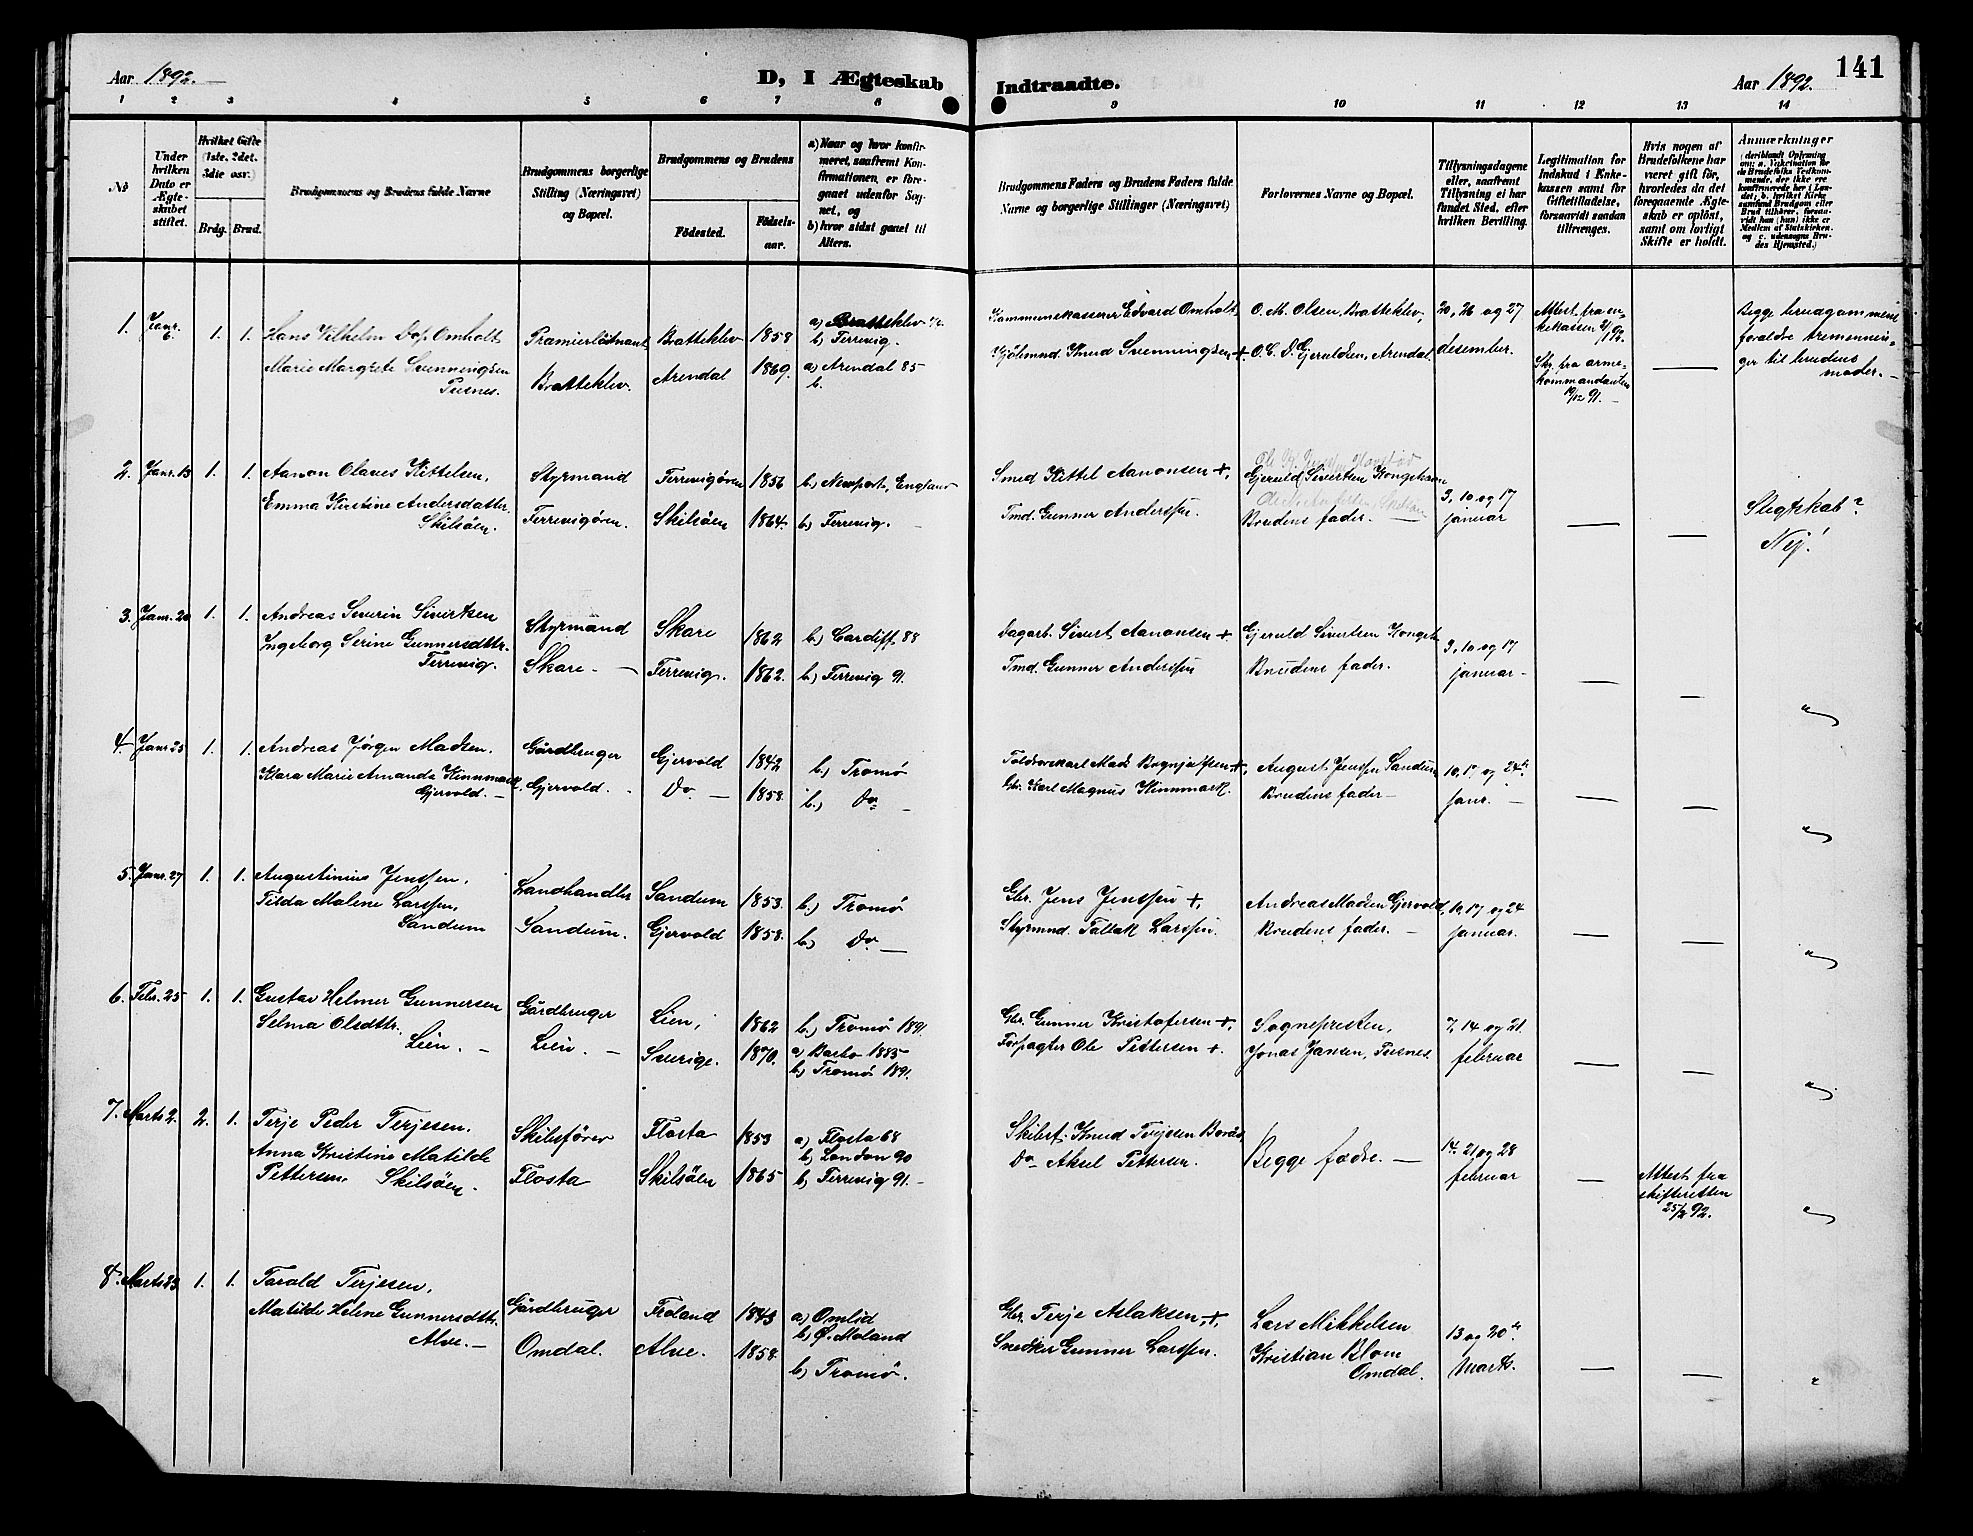 Aar 1892.
D, I Ægteskab Indtraadte.
Aar 1892.
141
1 2 3 4 5 6 7 8 9 10 11 12 13 14
No
Under hvilken Dato er Ægteskabet stiftet.
Hvilket Gifte (1ste, 2det, 3die osv.)
Brdg. Brud.
Brudgommens og Brudens fulde Navne
Brudgommens borgerlige Stilling (Næringsvei) og Bopæl.
Brudgommens og Brudens
Födested.
Födselsaar.
a) Naar og hvor konfirmeret, saafremt Konfirmationen er foregaaet udenfor Sognet, og
b) hvor sidst gaaet til Alters.
Brudgommens Faders og Brudens Faders fulde Navne og borgerlige Stillinger (Næringsvei)
Forlovernes Navne og Bopæl.
Tillysningsdagene eller, saafremt Tillysning ei har fundet Sted, efter hvilken Bevilling.
Legitimation for Indskud i Enkekassen samt for Giftetilladelse, forsaavidt saadan tiltrænges.
Hvis nogen af Brudefolkene har været gift för, hvorledes da det foregaaende Ægteskab er oplöst, samt om lovligt Skifte er holdt.
Anmærkninger
1. Janr. 6. 1. 1.
Hans Vilhelm Dop. Omholt
Marie Margrete Svenningsen
Pusnes.
Premierlöitnant
Bratteklev.
Bratteklev 1858
Arendal 1869.
b) Færvig.
a) Arendal 85
b.
Kommunekasserer Edvard Omholt
Kjöbmnd. Knud Svenningsen +
O. M. Olsen, Bratteklev,
Gjeruldsen, Arendal
20, 26 og 27
desember.
Attest fra enkekassen 2/1 92.
Skr. fra armekommandanten 19/12 91. —
Begge brudgommens forældre tremenninger til brudens moder. —
2. Janr. 13 1. 1.
Aanon Olaves Kittelsen,
Emma Kirstine Andersdatter
Skilsöen.
Styrmand
Færevigören.
Færevigören 1856
Skilsöen 1864.
b.) Newport, England
b) Færevig. —
Smed Kittel Aanonsen +,
Tmd. Gunner Anderssen.
Gjeruld Sivertsen Kongshavn
Brudens fader. —
3, 10 og 17
januar
—
—
Slegtskab?
Nej!
3. Janr. 20 1. 1.
Andreas Severin Sivertsen
Ingeborg Serine Gunnersdttr.
Færevig.
Styrmand
Skare. —
Skare 1862
Færevig. 1862.
b.) Cardiff. 88
b.) Færevig 91.
Dagarb. Sivert Aanonsen +
Tmd. Gunner Anderssen
Gjeruld Sivertsen Kongsh.
Brudens fader.
3, 10 og 17
januar —
—
—
"
4. Janr. 25 1. 1.
Andreas Jörgen Madsen.
Klara Marie Amanda Kinnmark,
Gjervold. —
Gårdbruger
Gjervold.
Gjervold 1842
Do — 1858.
b.) Tromö
b.) Do —
Karl Magnus Kinnmark.
August Jenssen Sandum
Brudens fader —
10, 17 og 24de
Janr. —
—
—
"
5. Janr. 27 1. 1.
Augustinius Jenssen,
Tilda Malene Larssen,
Sandum
Landhandler
Sandum.
Sandum 1853.
Gjervold 1858.
b.) Tromö
b.) Do —
Gbr. Jens Jenssen +,
Styrmnd. Tallak Larssen.
Andreas Madsen Gjervold,
Brudens fader. —
10, 17 og 24
januar.
—
—
"
6. Febr. 25 1. 1.
Gustav Helmer Gunnersen
Selma Olsdttr.
Lien. —
Gårdbruger
Lien. —
Lien, 1862
Sverige. 1870.
b.) Tromö 1891
a) Barbo 1885
b) Tromö 1891.
Gbr. Gunner Kristofersen +,
Forpagter Ole Pettersen +.
Sognepresten,
Jonas Jansen, Pusnes
7, 14 og 21.
februar
—
—
"
7. Marts 2. 2. 1.
Terje Peder Terjesen.
Anna Kristine Matilde
Pettersen. Skilsöen. —
Skibsförer
Flosta
Flosta 1853
Skilsöen 1865
a) Flosta 68
b) London 90
b) Færevig 91. —
Skibsf. Knud Terjesen Borås
Do Aksel Pettersen.
Begge fædre. —
14. 21 og 28
februar
—
Attest fra skifteretten 25/2 92.
"
8. Marts 23 1. 1.
Tarald Terjesen,
Matilde Helene Gunnersdttr.
Alve. —
Gårdbruger
Omdal.
Froland 1843
Alve. 1858.
a) Omlid
b) Ø. Moland
b) Tromö.
Gbr. Terje Aslaksen +,
Snedker Gunner Larssen.
Lars Mikkelsen
Kristian Blom
Omdal.
13 og 20de
marts.
—
—
"